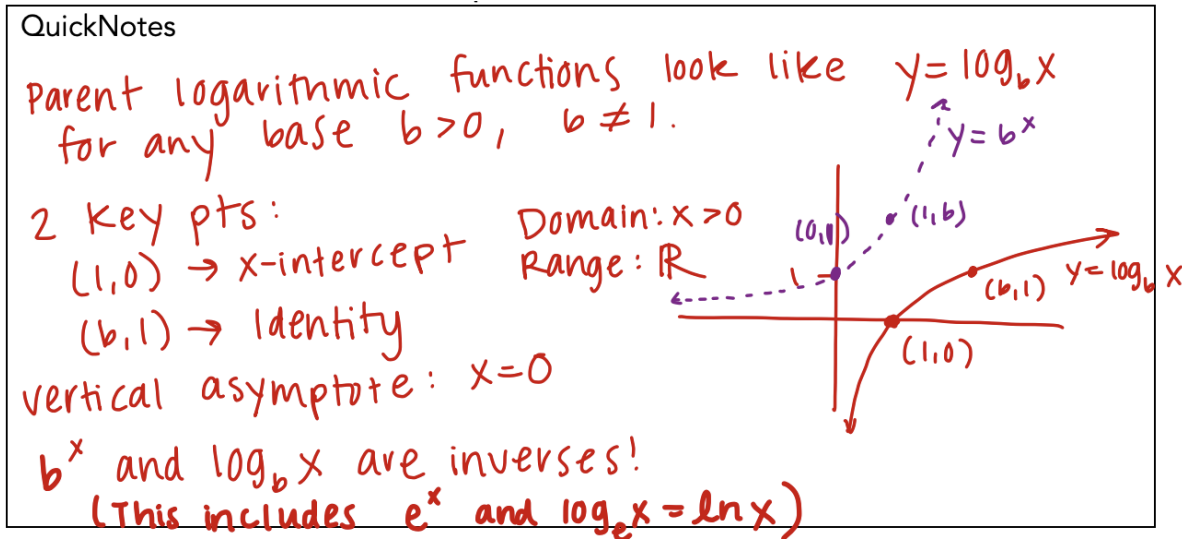 QuickNotes
Parent logarithmic functions look like y = log_b x
for any base b > 0, b ≠ 1.
y = b^x
2 key pts:
(1,0) → x-intercept
(b,1) → Identity
Domain: x > 0
Range: ℝ
(0,1)
(1,b)
1
(b,1)
y = log_b x
(1,0)
vertical asymptote: x = 0
b^x and log_b x are inverses!
(This includes e^x and log_e x = ln x)